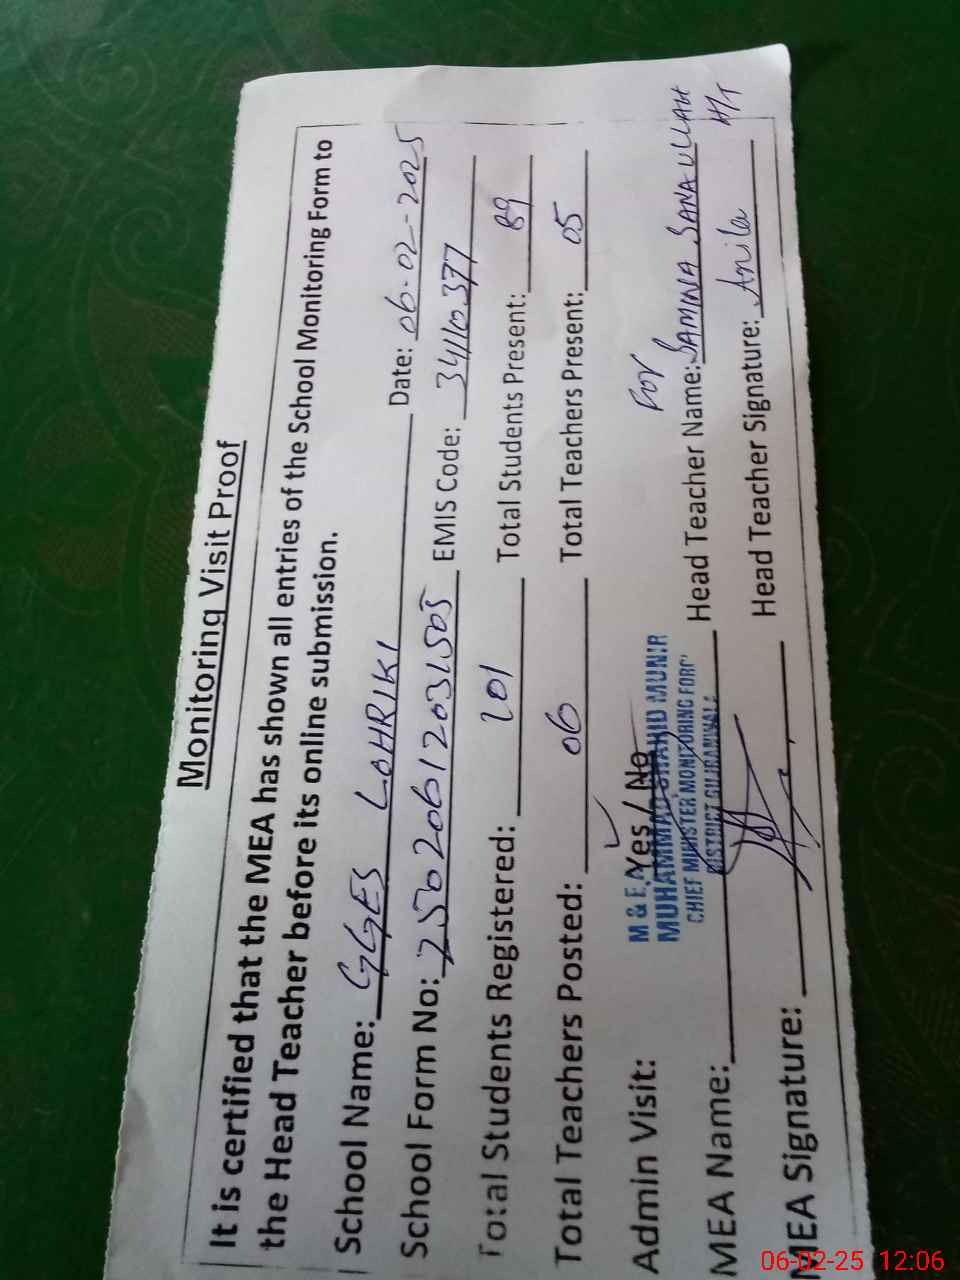 Monitoring Visit Proof
It is certified that the MEA has shown all entries of the School Monitoring Form to
the Head Teacher before its online submission.
School Name: GGES LOHRIKI Date: 06-02-2025
School Form No: 2502061203L505 EMIS Code: 34110377
Total Students Registered: 101 Total Students Present: 89
Total Teachers Posted: 06 Total Teachers Present: 05
Admin Visit: Yes / No
M & E.A
MUHAMMAD SHAHID MUNIR
CHIEF MINISTER MONITORING FORC
DISTRICT GUJRANWALA
For
MEA Name: Head Teacher Name: SAMINA SANA ULLAH
H/T
MEA Signature: Head Teacher Signature: Anila
06-02-25 12:06